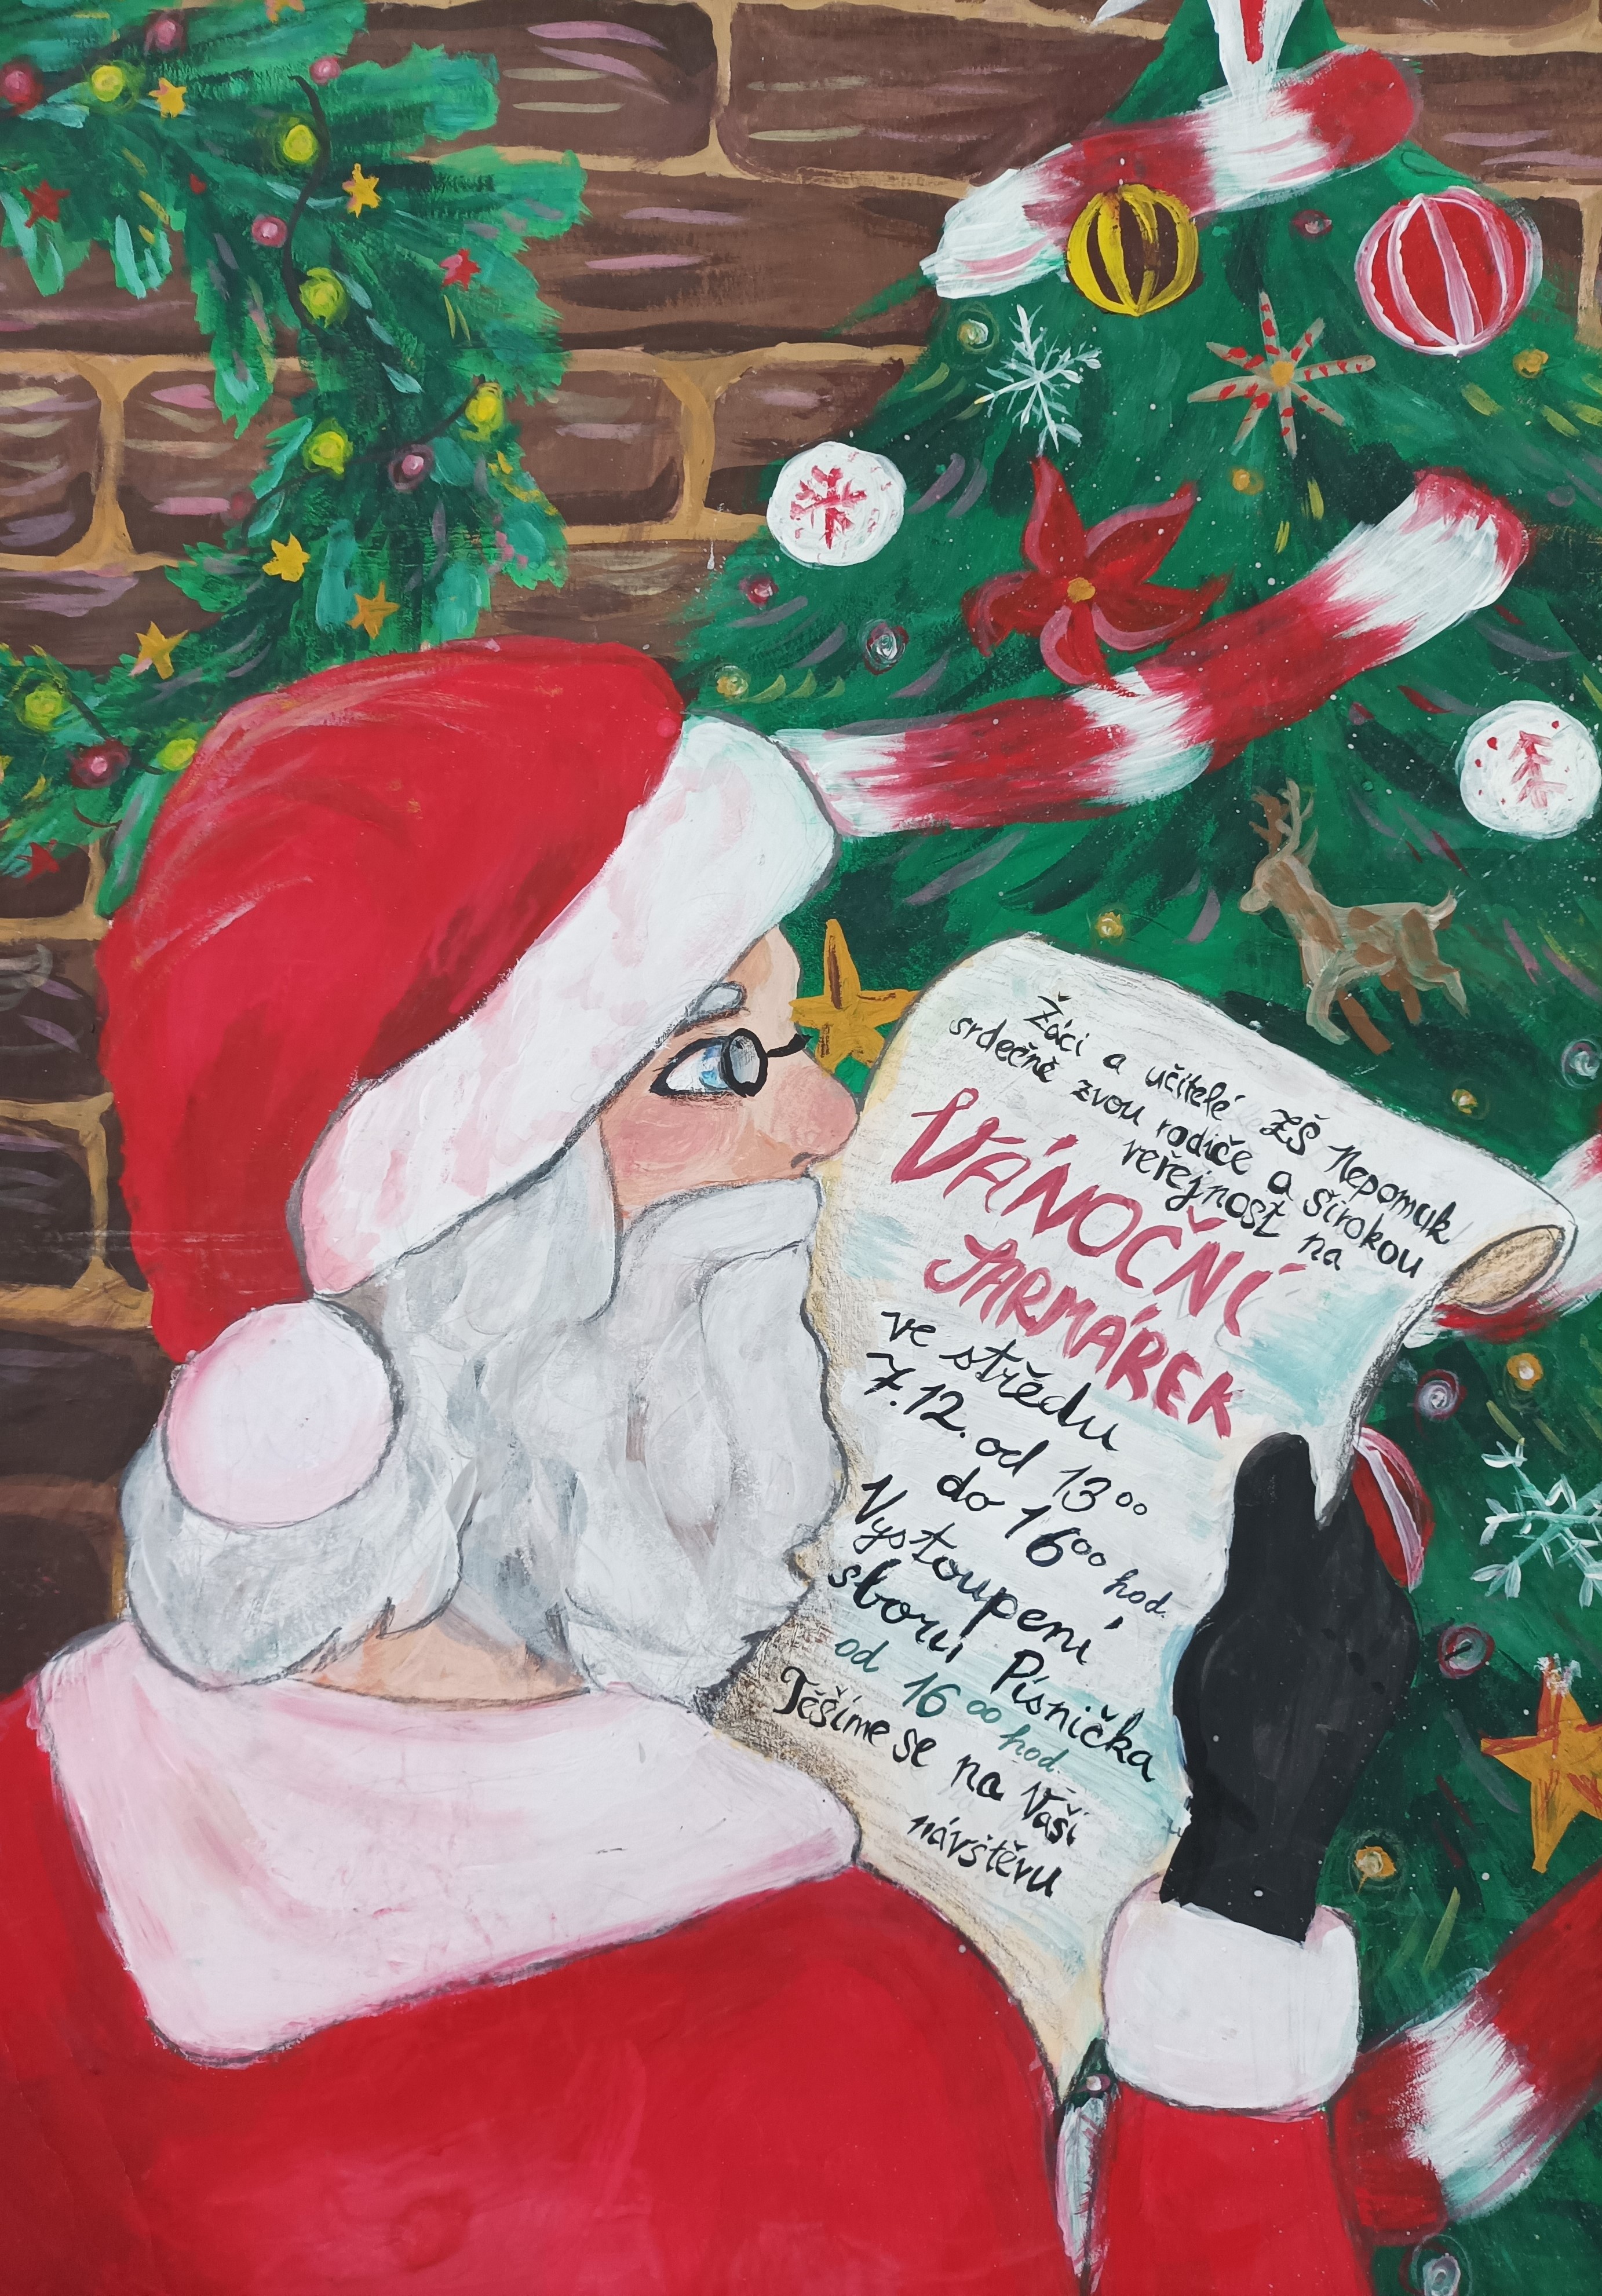 Žáci a učitelé ZŠ Nepomuk
srdečně zvou rodiče a širokou
veřejnost na
VÁNOČNÍ
JARMÁREK
ve středu
7.12. od 13 00
do 16 00 hod.
Vystoupení
sboru Písnička
od 16 00 hod.
Těšíme se na Vaší
návštěvu